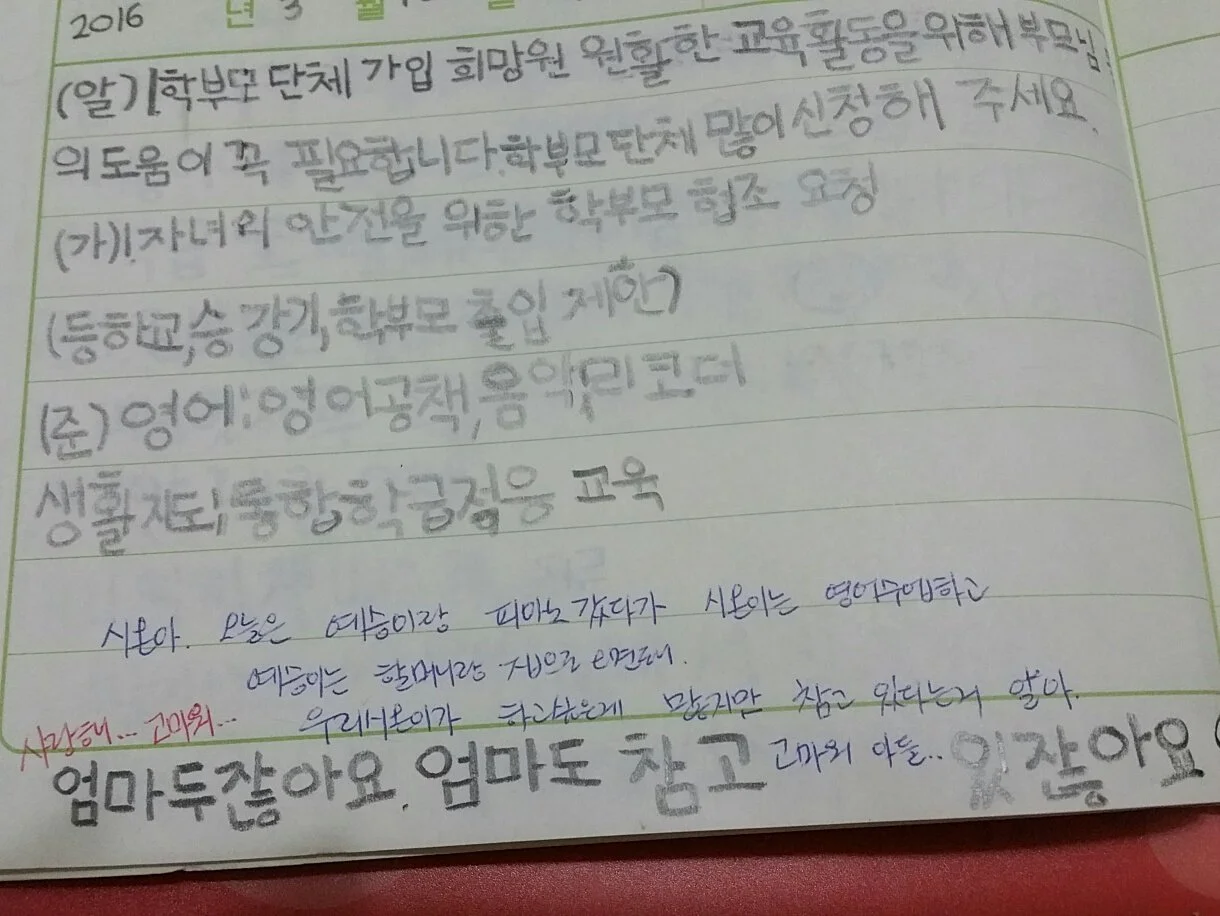 2016 년 3 월
(알) 1학부모 단체 가입 희망원 원활한 교육활동을 위해 부모님
의 도움이 꼭 필요합니다.학부모단체 많이 신청해 주세요.
(가)1.자녀의 안전을 위한 학부모 협조 요청
(등하교,승강기,학부모 출입 제한)
(준) 영어:영어공책,음악,리코더
생활지도:통합학급적응 교육
시온아. 오늘은 예승이랑 피아노 갔다가 시온이는 영어수업하고
예승이는 할머니랑 집으로 오면돼.
사랑해... 고마워... 우리시온이가 하고싶은게 많지만 참고 있다는거 알아.
엄마두잖아요. 엄마도 참고 고마워 아들.. 있잖아요